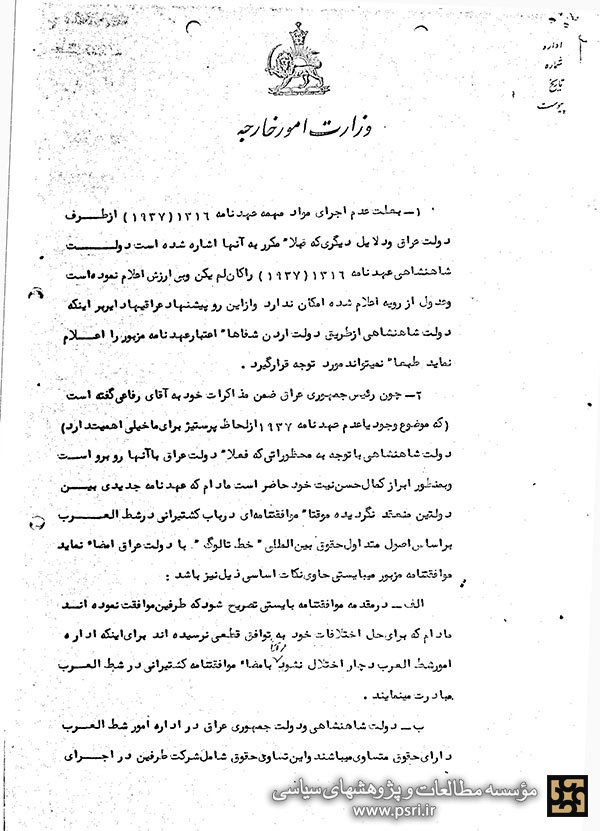 اداره
شماره
تاریخ
پیوست
وزارت امور خارجه
۱ــ بعلت عدم اجرای مواد مهمه عهدنامه ۱۳۱۶ (۱۹۳۷) از طرف
دولت عراق و دلایل دیگری که قبلا" مکرر به آنها اشاره شده است دولت
شاهنشاهی عهدنامه ۱۳۱۶ (۱۹۳۷) را کان لم یکن و بی ارزش اعلام نموده است
و عدول از رویه اعلام شده امکان ندارد و از این رو پیشنهاد عراقیها دایر بر اینکه
دولت شاهنشاهی از طریق دولت اردن شفاها" اعتبار عهدنامه مزبور را اعلام
نماید طبعا" نمیتواند مورد توجه قرار گیرد .
۲ــ چون رئیس جمهوری عراق ضمن مذاکرات خود به آقای رفاعی گفته است
(که موضوع وجود یا عدم عهدنامه ۱۹۳۷ از لحاظ پرستیژ برای ما خیلی اهمیت دارد)
دولت شاهنشاهی با توجه به محظوراتی که فعلا" دولت عراق با آنها روبرو است
و بمنظور ابراز کمال حسن نیت خود حاضر است مادام که عهدنامه جدیدی بین
دولتین منعقد نگردیده موقتا" موافقتنامه ای در باب کشتیرانی در شط العرب
بر اساس اصول متداول حقوق بین المللی "خط تالوگ" با دولت عراق امضاء نماید
موافقتنامه مزبور میبایستی حاوی نکات اساسی ذیل نیز باشد :
الف ــ در مقدمه موافقتنامه بایستی تصریح شود که طرفین موافقت نموده اند
مادام که برای حل اختلافات خود به توافق قطعی نرسیده اند برای اینکه اداره
امور شط العرب دچار اختلال نشود بامضاء موافقتنامه کشتیرانی در شط العرب
مبادرت مینمایند .
ب ــ دولت شاهنشاهی و دولت جمهوری عراق در اداره امور شط العرب
دارای حقوق متساوی میباشند و این تساوی حقوق شامل شرکت طرفین در اجرای
مؤسسه مطالعات و پژوهشهای سیاسی
www.psri.ir